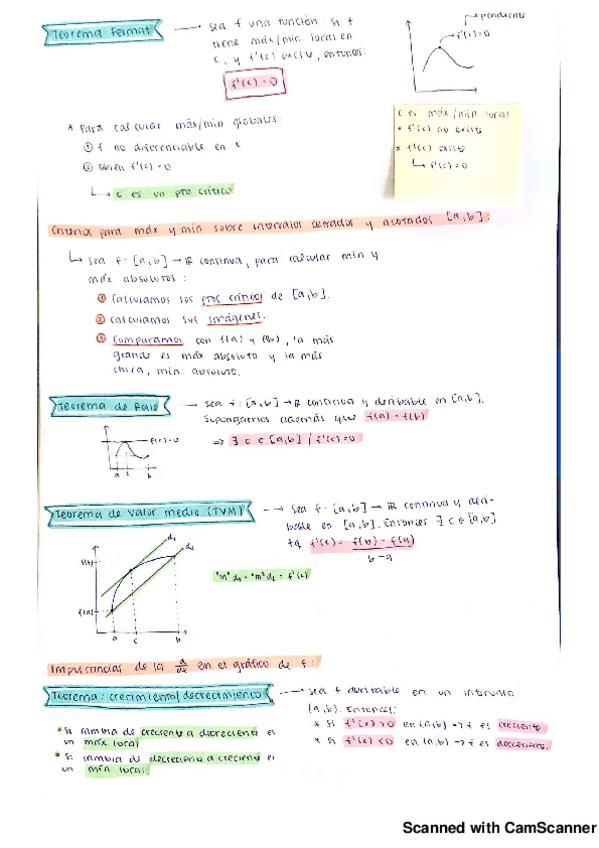 Teorema Fermat → sea f una función. Si f
tiene máx/min local en
c, y f'(c) existe, entonces:
f'(c) = 0
pendiente
f'(c)=0
* Para calcular máx/min globales:
① f no diferenciable en c
② obien f'(c) = 0
↳ c es un pto crítico
c es máx/min local
* f'(c) no existe
* f'(c) existe
↳ f'(c) = 0
Criterios para máx y min sobre intervalos cerrados y acotados [a,b]:
↳ sea f: [a,b] → ℝ continua, para calcular min y
máx absolutos:
① Calculamos los ptos críticos de [a,b].
② calculamos sus imágenes.
③ Comparamos con f(a) y f(b), la más
grande es máx absoluto y la más
chica, min absoluto.
Teorema de Role → sea f: [a,b] → ℝ continua y deribable en [a,b].
Supongamos además que f(a) = f(b)
⇒ ∃ c ∈ [a,b] / f'(c)=0
f'(c)=0
a c b
Teorema de valor medio (TVM) → sea f: [a,b] → ℝ continua y deri-
bable en [a,b]. Entonces ∃ c ∈ [a,b]
tq f'(c) = f(b) - f(a)
b - a
d₁
d₂
f(b)
f(a)
a c b
"m" d₁ = "m" d₂ = f'(c)
Importancias de la d/dx en el gráfico de f:
Teorema: crecimiento/decrecimiento → sea f deribable en un intervalo
(a,b). Entonces:
* si f'(x) >0 en (a,b) → f es creciente
* si f'(x) <0 en (a,b) → f es decreciente.
* Si cambia de creciente a decreciente es
un máx local
* Si cambia de decreciente a creciente es
un min local
Scanned with CamScanner